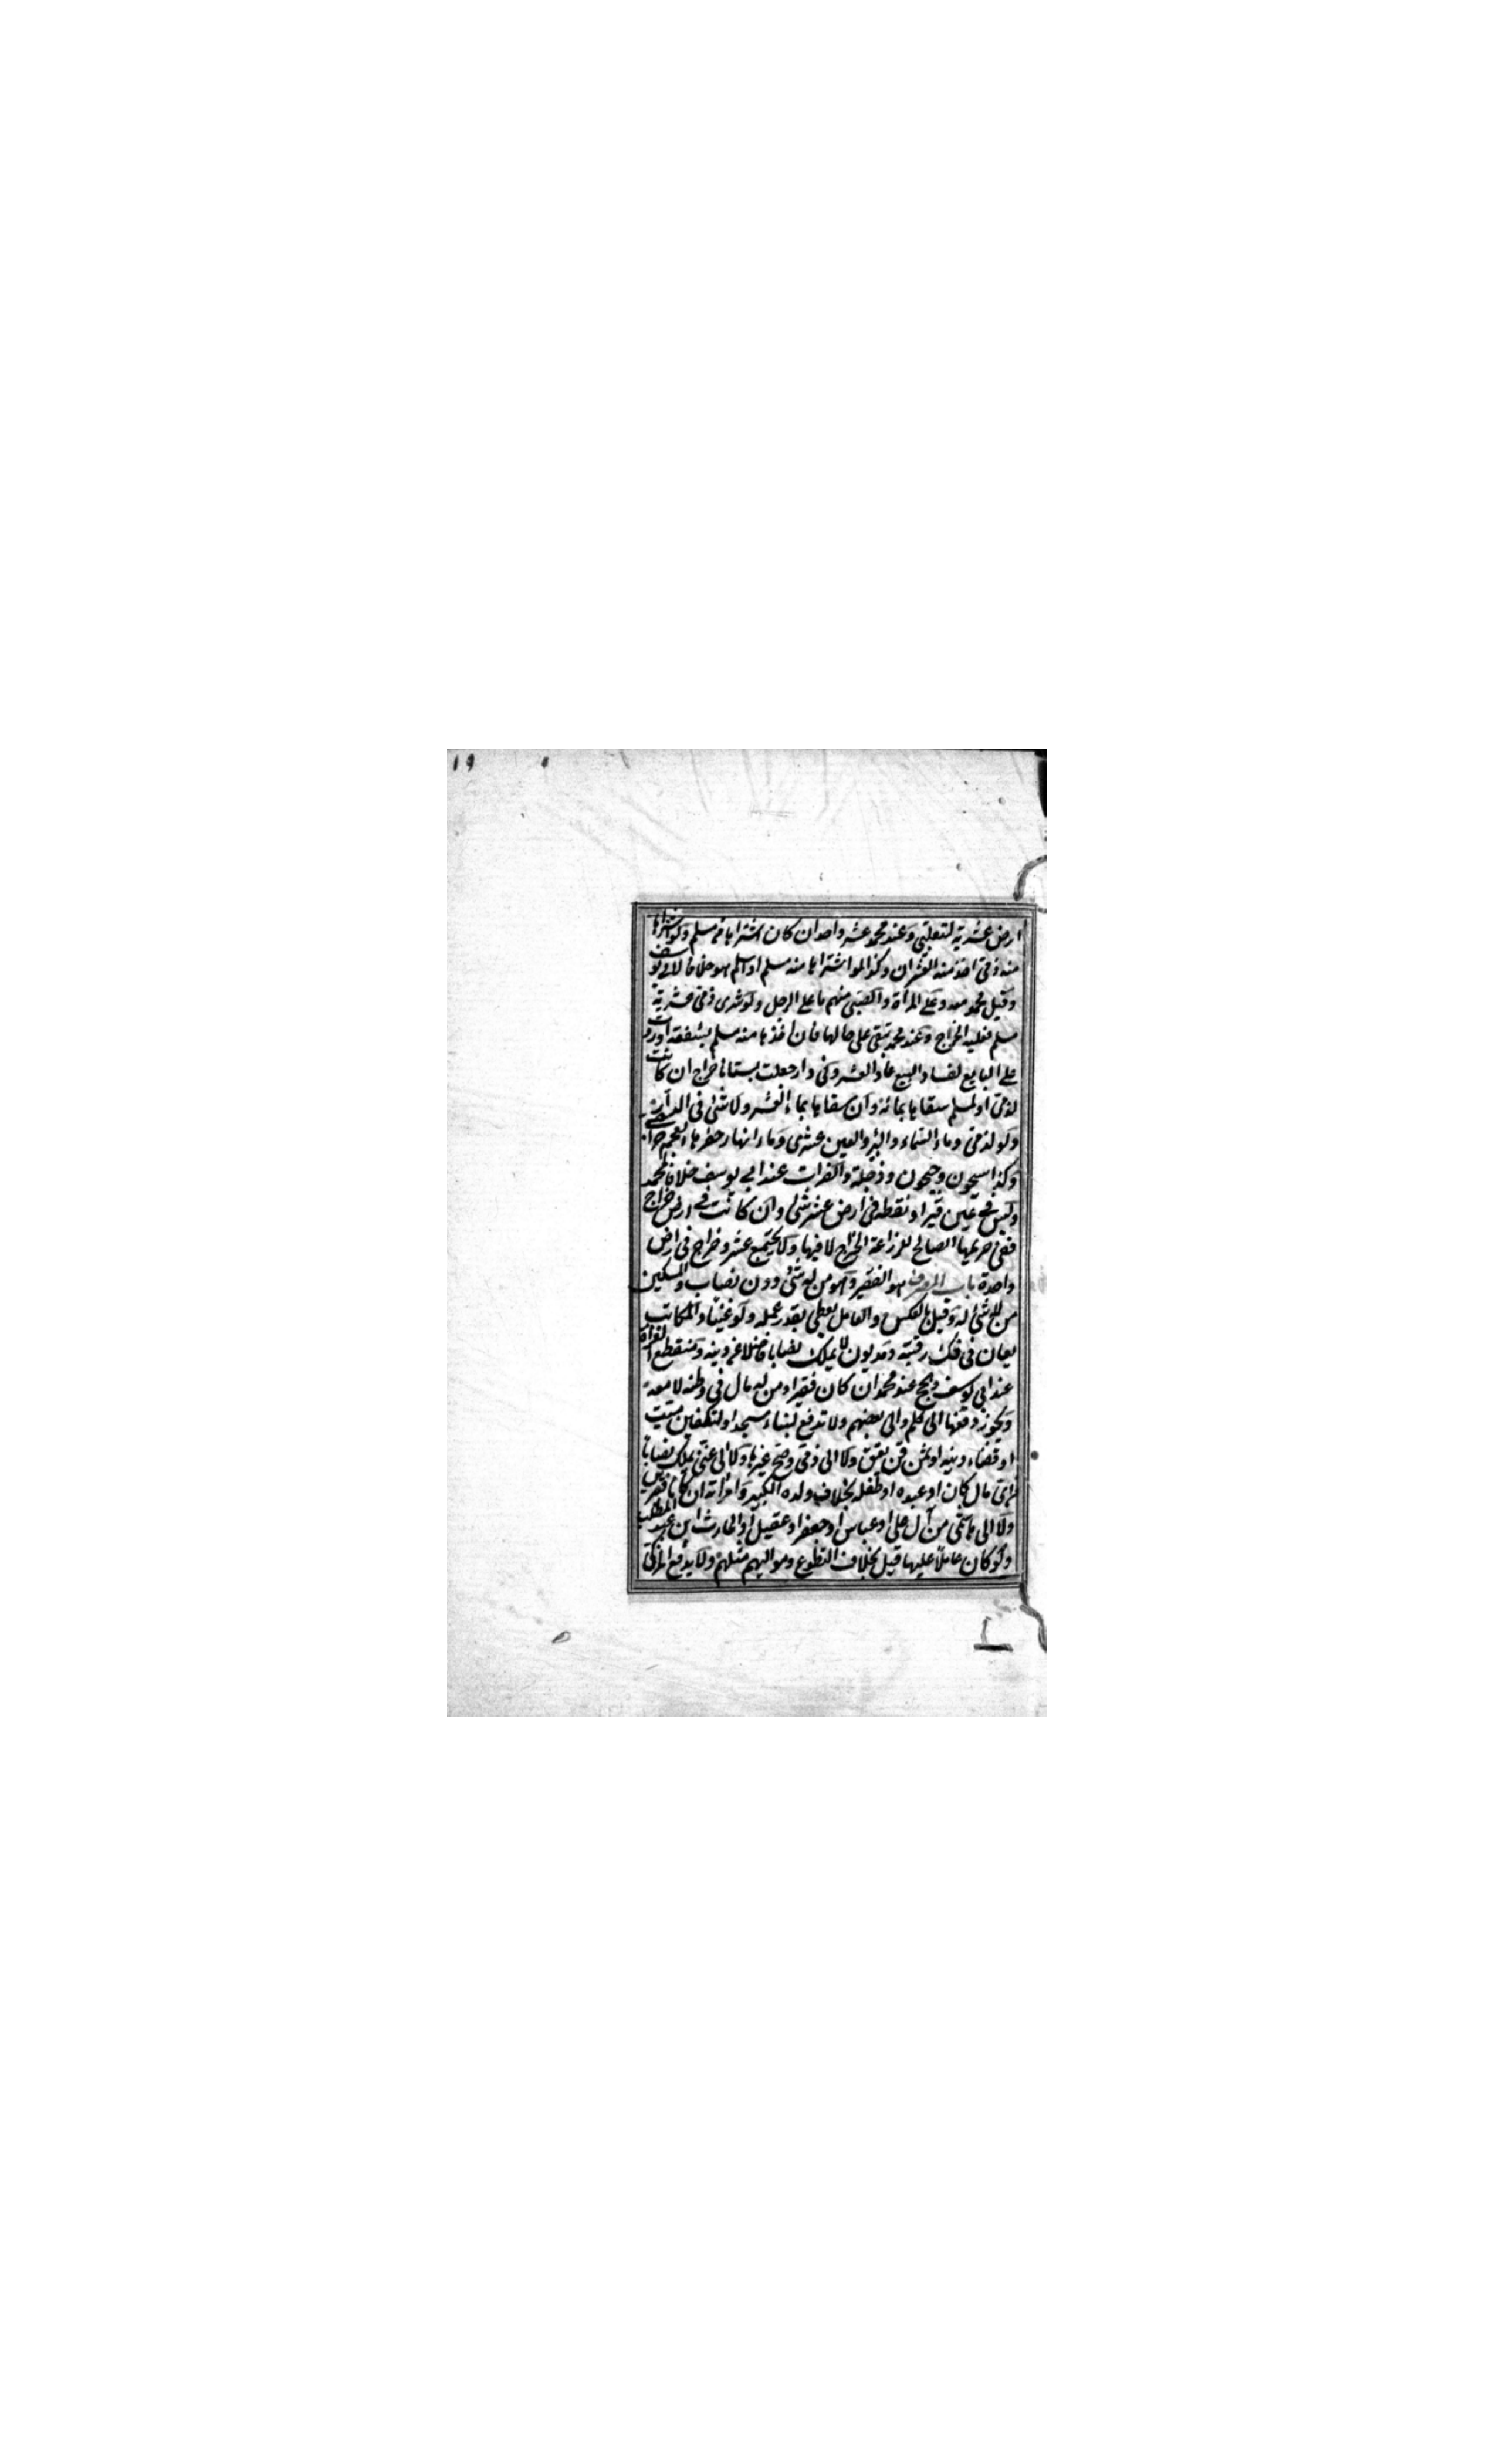 ١٩
ارض عشرية لتغلبي وعند محمد عشر واحد ان كان اشتراها من مسلم ولو اشتراها
منه ذمي اخذ منه العشران وكذا لو اشتراها منه مسلم او اسلم هو خلافا لابي يوسف
وقيل محمد معه وعلى المرأة والصبي منهم ما على الرجل ولو شرى ذمي عشرية
مسلم فعليه الخراج وعند محمد تبقى على حالها فان اخذها منه مسلم بشفعة او ردت
على البايع لفساد البيع عاد العشر وفي دار جعلت بستانا خراج ان كانت
لذمي او لمسلم سقاها بمائه وان سقاها بماء العشر ولا شئ في الدار
ولو لذمي وماء السماء والبئر والعين عشري وماء انهار حفرها العجم خراجي
وكذا سيحون وجيحون ودجلة والفرات عند ابي يوسف خلافا لمحمد
وليس في عين قير او نفط في ارض عشر شئ وان كانت في ارض خراج
ففي حريمها الصالح للزراعة الخراج لا فيها ولا يجتمع عشر وخراج في ارض
واحدة باب المصرف هو الفقير وهو من له شئ دون نصاب والمسكين
من لا شئ له وقيل بالعكس والعامل يعطى بقدر عمله ولو غنيا والمكاتب
يعان في فك رقبته ومديون لا يملك نصابا فاضلا عن دينه ومنقطع الغزاة
عند ابي يوسف وبحج عند محمد ان كان فقيرا ومن له مال في وطنه لا معه
ويجوز دفعها الى كلهم والى بعضهم ولا تدفع لبناء مسجد او لتكفين ميت
او قضاء دينه او ثمن قن يعتق ولا الى ذمي وصح غيرها ولا الى غني يملك نصابا
من اي مال كان او عبده او طفله بخلاف ولده الكبير وامرأته ان كانا فقيرين
ولا الى هاشمي من آل علي او عباس او جعفر او عقيل او الحارث ابن عبد المطلب
ولو كان عاملا عليها قيل بخلاف التطوع ومواليهم مثلهم ولا يدفع المزكي